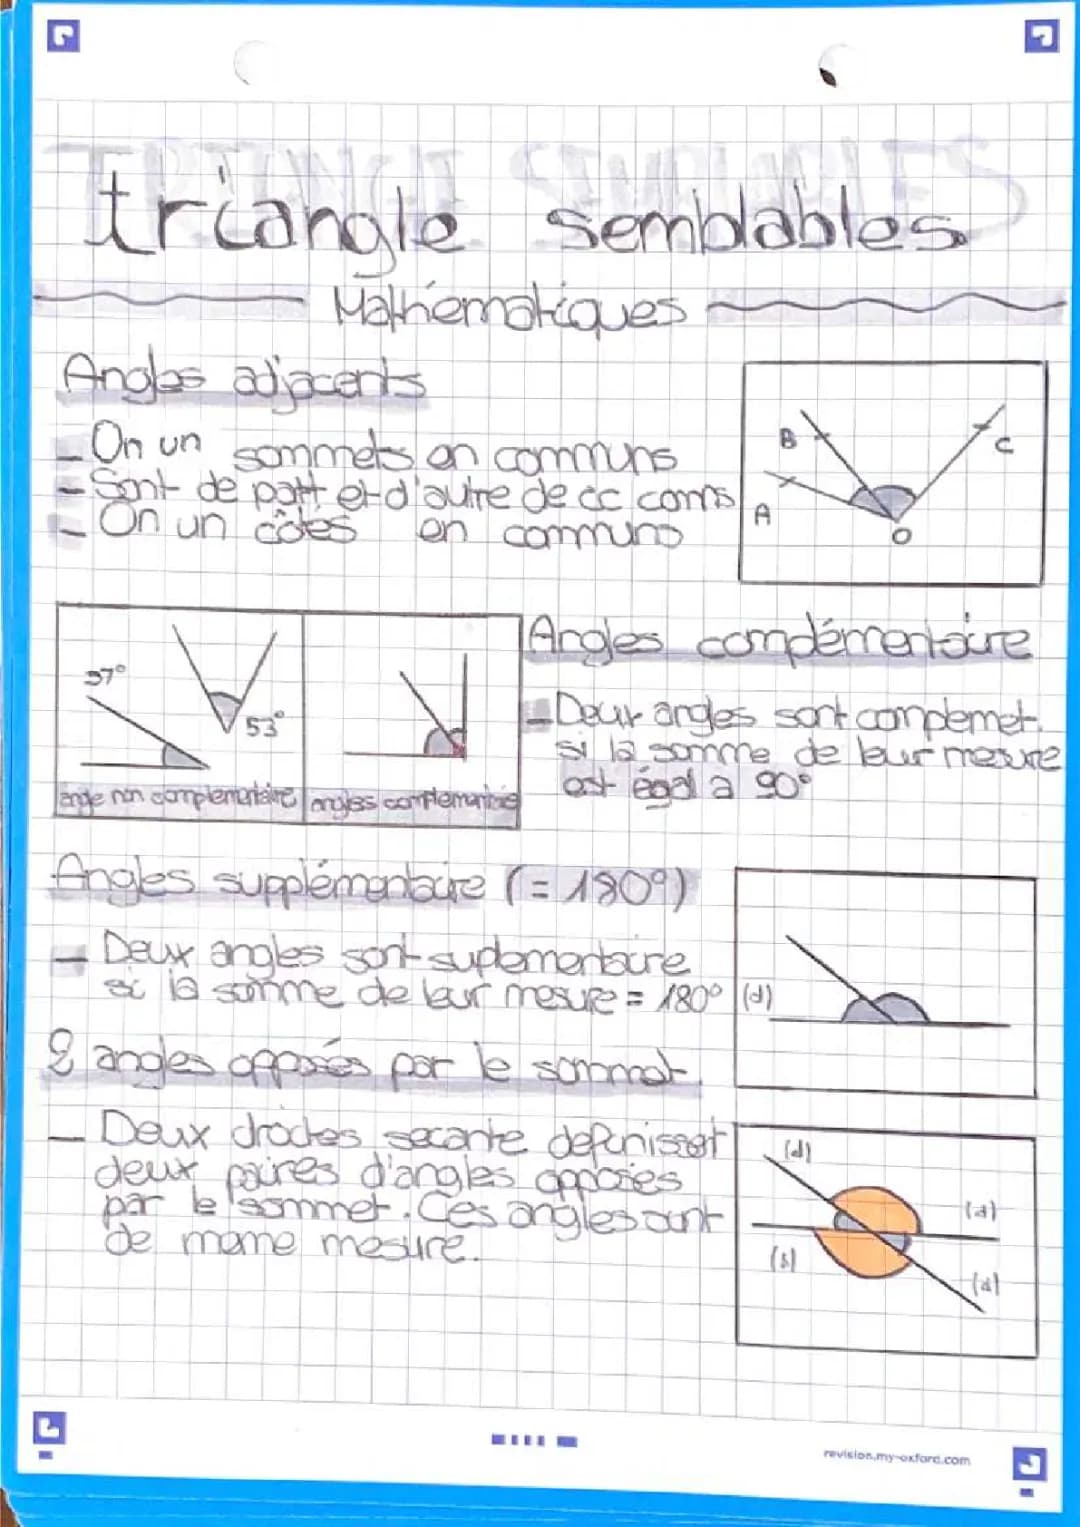 triangle semblables
Mathématiques
Angles adjacents
- On un sommets en communs
- Sont de part et d'autre de cc comns
- On un côtés en communs
B
C
A
O
37°
53°
angle non complementaire
angles complementaire
Angles complémentaire
- Deux angles sont complemet.
si la somme de leur mesure
est égal a 90°
Angles supplémentaire (= 180°)
- Deux angles sont suplementaire
si la somme de leur mesure = 180°
(d)
2 angles opposés par le sommet
- Deux droites secante definisset
deux paires d'angles opposés
par le sommet. Ces angles ont
de meme mesure.
(d)
(d)
(d)
revision.my-oxford.com